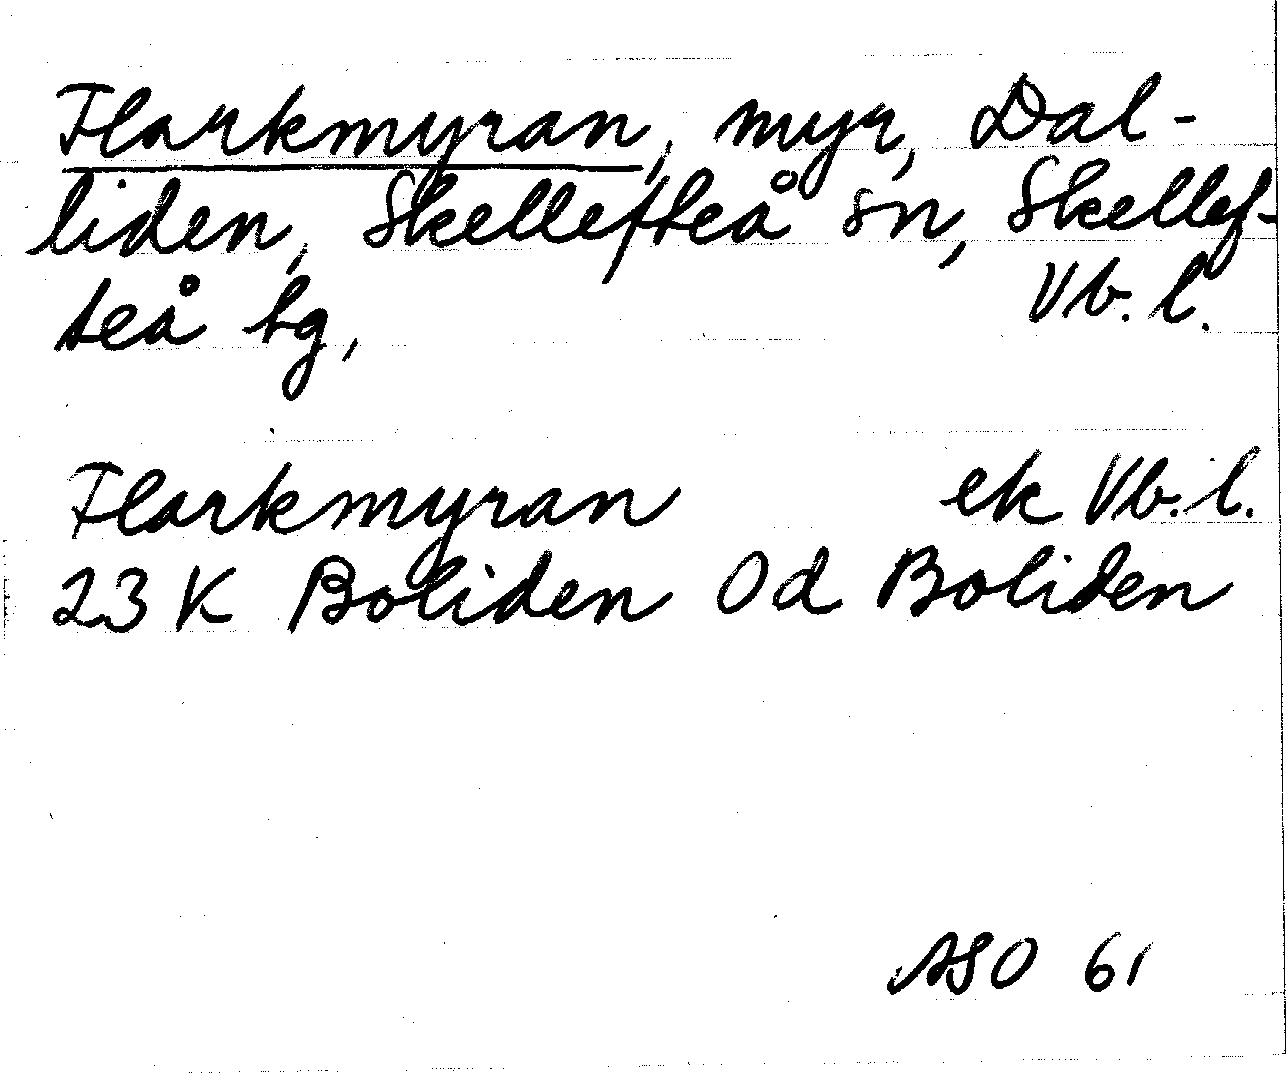 Flarkmyran, myr, Dal-
liden, Skellefteå sn, Skellef-
teå tg, Vb. l.
Flarkmyran ek Vb. l.
23 K Boliden 0d Boliden
ASO 61